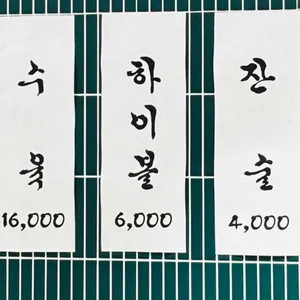 수육
16,000
하이볼
6,000
잔술
4,000